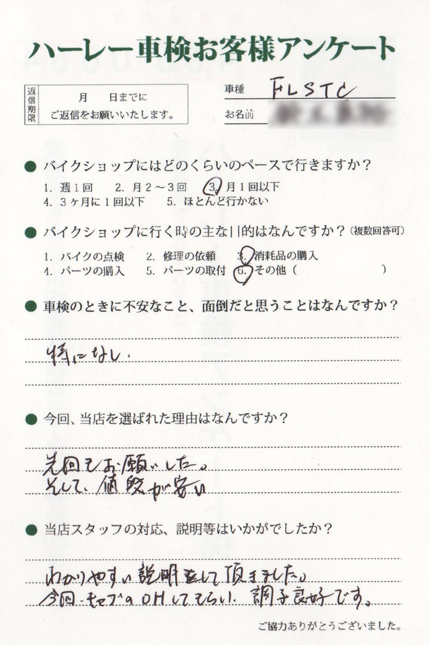 ハーレー車検お客様アンケート
返信期限
月 日までに
ご返信をお願いいたします。
車種 FLSTC
お名前
● バイクショップにはどのくらいのペースで行きますか?
1. 週1回 2. 月2〜3回 3. 月1回以下
4. 3ヶ月に1回以下 5. ほとんど行かない
● バイクショップに行く時の主な目的はなんですか?(複数回答可)
1. バイクの点検 2. 修理の依頼 3. 消耗品の購入
4. パーツの購入 5. パーツの取付 6. その他( )
● 車検のときに不安なこと、面倒だと思うことはなんですか?
特になし.
● 今回、当店を選ばれた理由はなんですか?
先回もお願いした。
そして、値段が安い
● 当店スタッフの対応、説明等はいかがでしたか?
わかりやすい説明をして頂きました。
今回.キャブのOHしてもらい.調子良好です。
ご協力ありがとうございました。